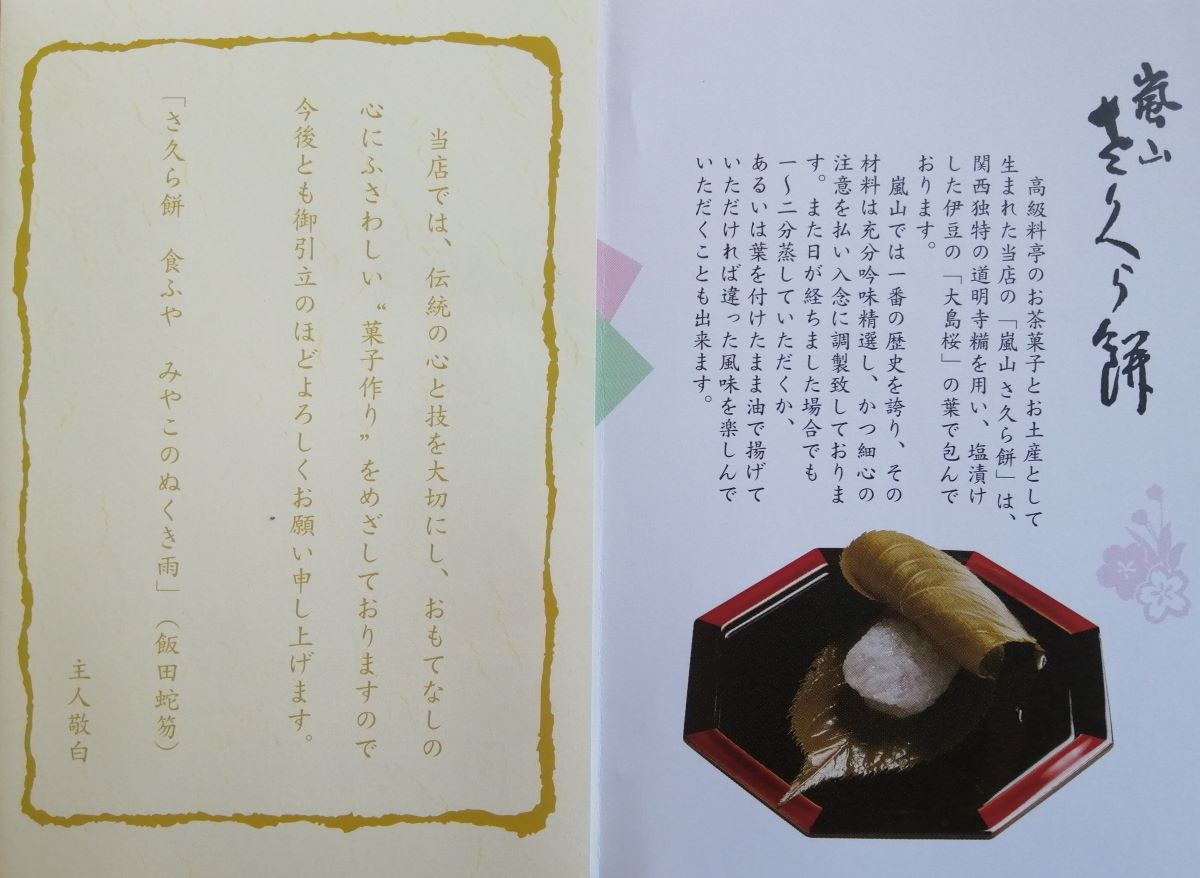 嵐山
さ久ら餅
高級料亭のお茶菓子とお土産として
生まれた当店の「嵐山さ久ら餅」は、
関西独特の道明寺糒を用い、塩漬け
した伊豆の「大島桜」の葉で包んで
おります。
嵐山では一番の歴史を誇り、その
材料は充分吟味精選し、かつ細心の
注意を払い入念に調製致しておりま
す。また日が経ちました場合でも
一〜二分蒸していただくか、
あるいは葉を付けたまま油で揚げて
いただければ違った風味を楽しんで
いただくことも出来ます。
当店では、伝統の心と技を大切にし、おもてなしの
心にふさわしい“菓子作り”をめざしておりますので
今後とも御引立のほどよろしくお願い申し上げます。
「さ久ら餅　食ふや　みやこのぬくき雨」（飯田蛇笏）
主人敬白